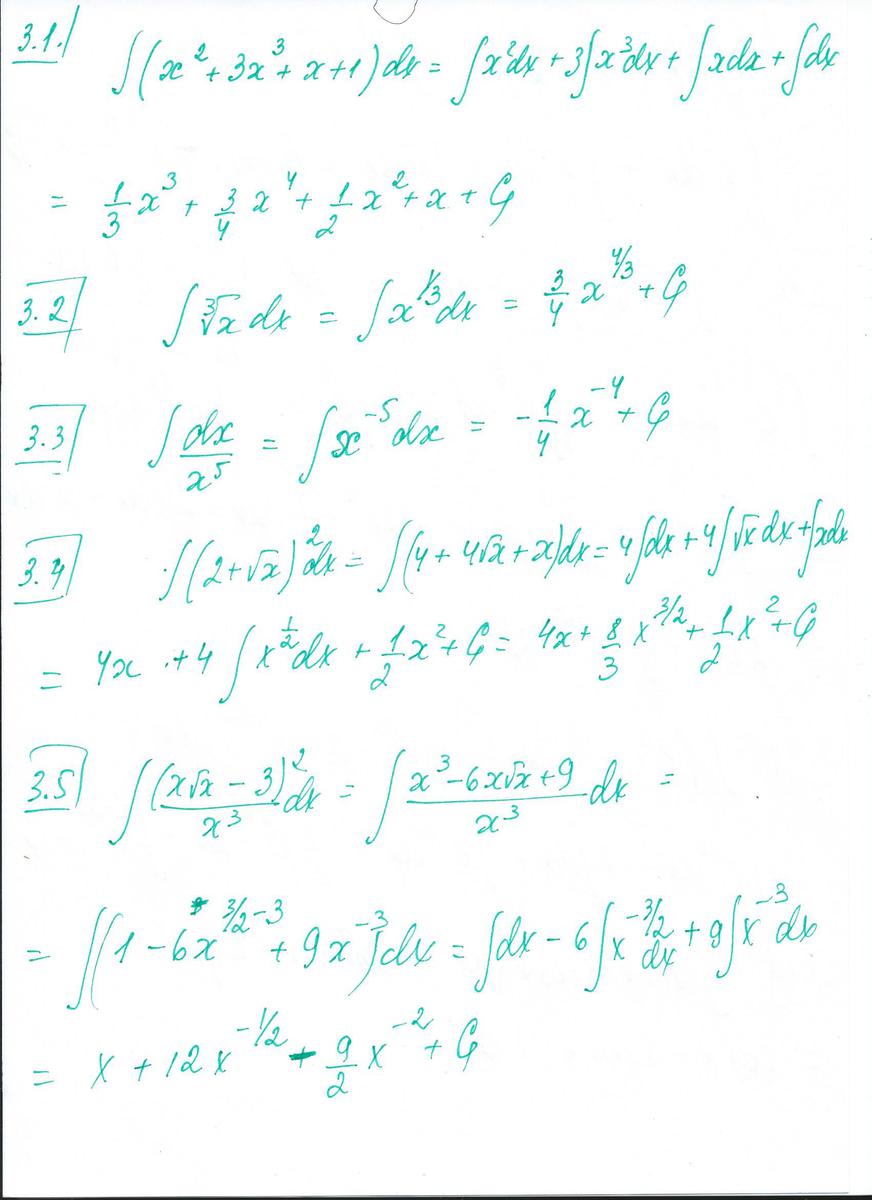 3.1. ∫(x² + 3x³ + x + 1) dx = ∫x²dx + 3∫x³dx + ∫xdx + ∫dx
= 1/3 x³ + 3/4 x⁴ + 1/2 x² + x + C₁
3.2 ∫∛x dx = ∫x^(1/3) dx = 3/4 x^(4/3) + C₁
3.3 ∫dx/x⁵ = ∫x⁻⁵ dx = -1/4 x⁻⁴ + C₁
3.4 ∫(2+√x)² dx = ∫(4 + 4√x + x)dx = 4∫dx + 4∫√x dx + ∫xdx
= 4x + 4∫x^(1/2) dx + 1/2 x² + C₁ = 4x + 8/3 x^(3/2) + 1/2 x² + C₁
3.5 ∫(x√x - 3)²/x³ dx = ∫(x³ - 6x√x + 9)/x³ dx =
= ∫(1 - 6x^(3/2-3) + 9x⁻³)dx = ∫dx - 6∫x^(-3/2) dx + 9∫x⁻³ dx
= x + 12x^(-1/2) - 9/2 x⁻² + C₁